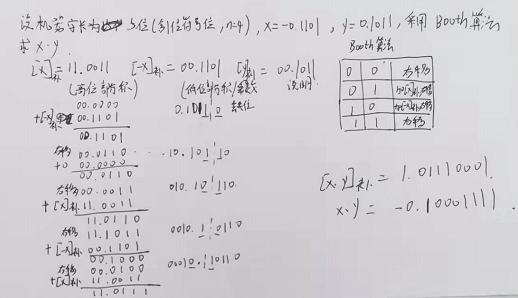 设机器字长为5位(含1位符号位,n=4), x=-0.1101, y=0.1011, 采用Booth算法
求x·y.
[x]补=11.0011 [-x]补=00.1101 [y]补=00.1011
(高位部分积) (低位部分积/乘数) 说明
00.0000 0.10110
+[-x]补 00.1101
00.1101
右移 00.0110 10.10110
+0 00.0000
00.0110
右移 00.0011 010.10110
+[x]补 11.0011
11.0110
右移 11.1011 0010.10110
+[-x]补 00.1101
00.1000
右移 00.0100 00010.10110
+[x]补 11.0011
11.0111
Booth算法
0 0 右移
0 1 加[x]补,右移
1 0 加[-x]补,右移
1 1 右移
[x·y]补=1.01110001
x·y=-0.10001111